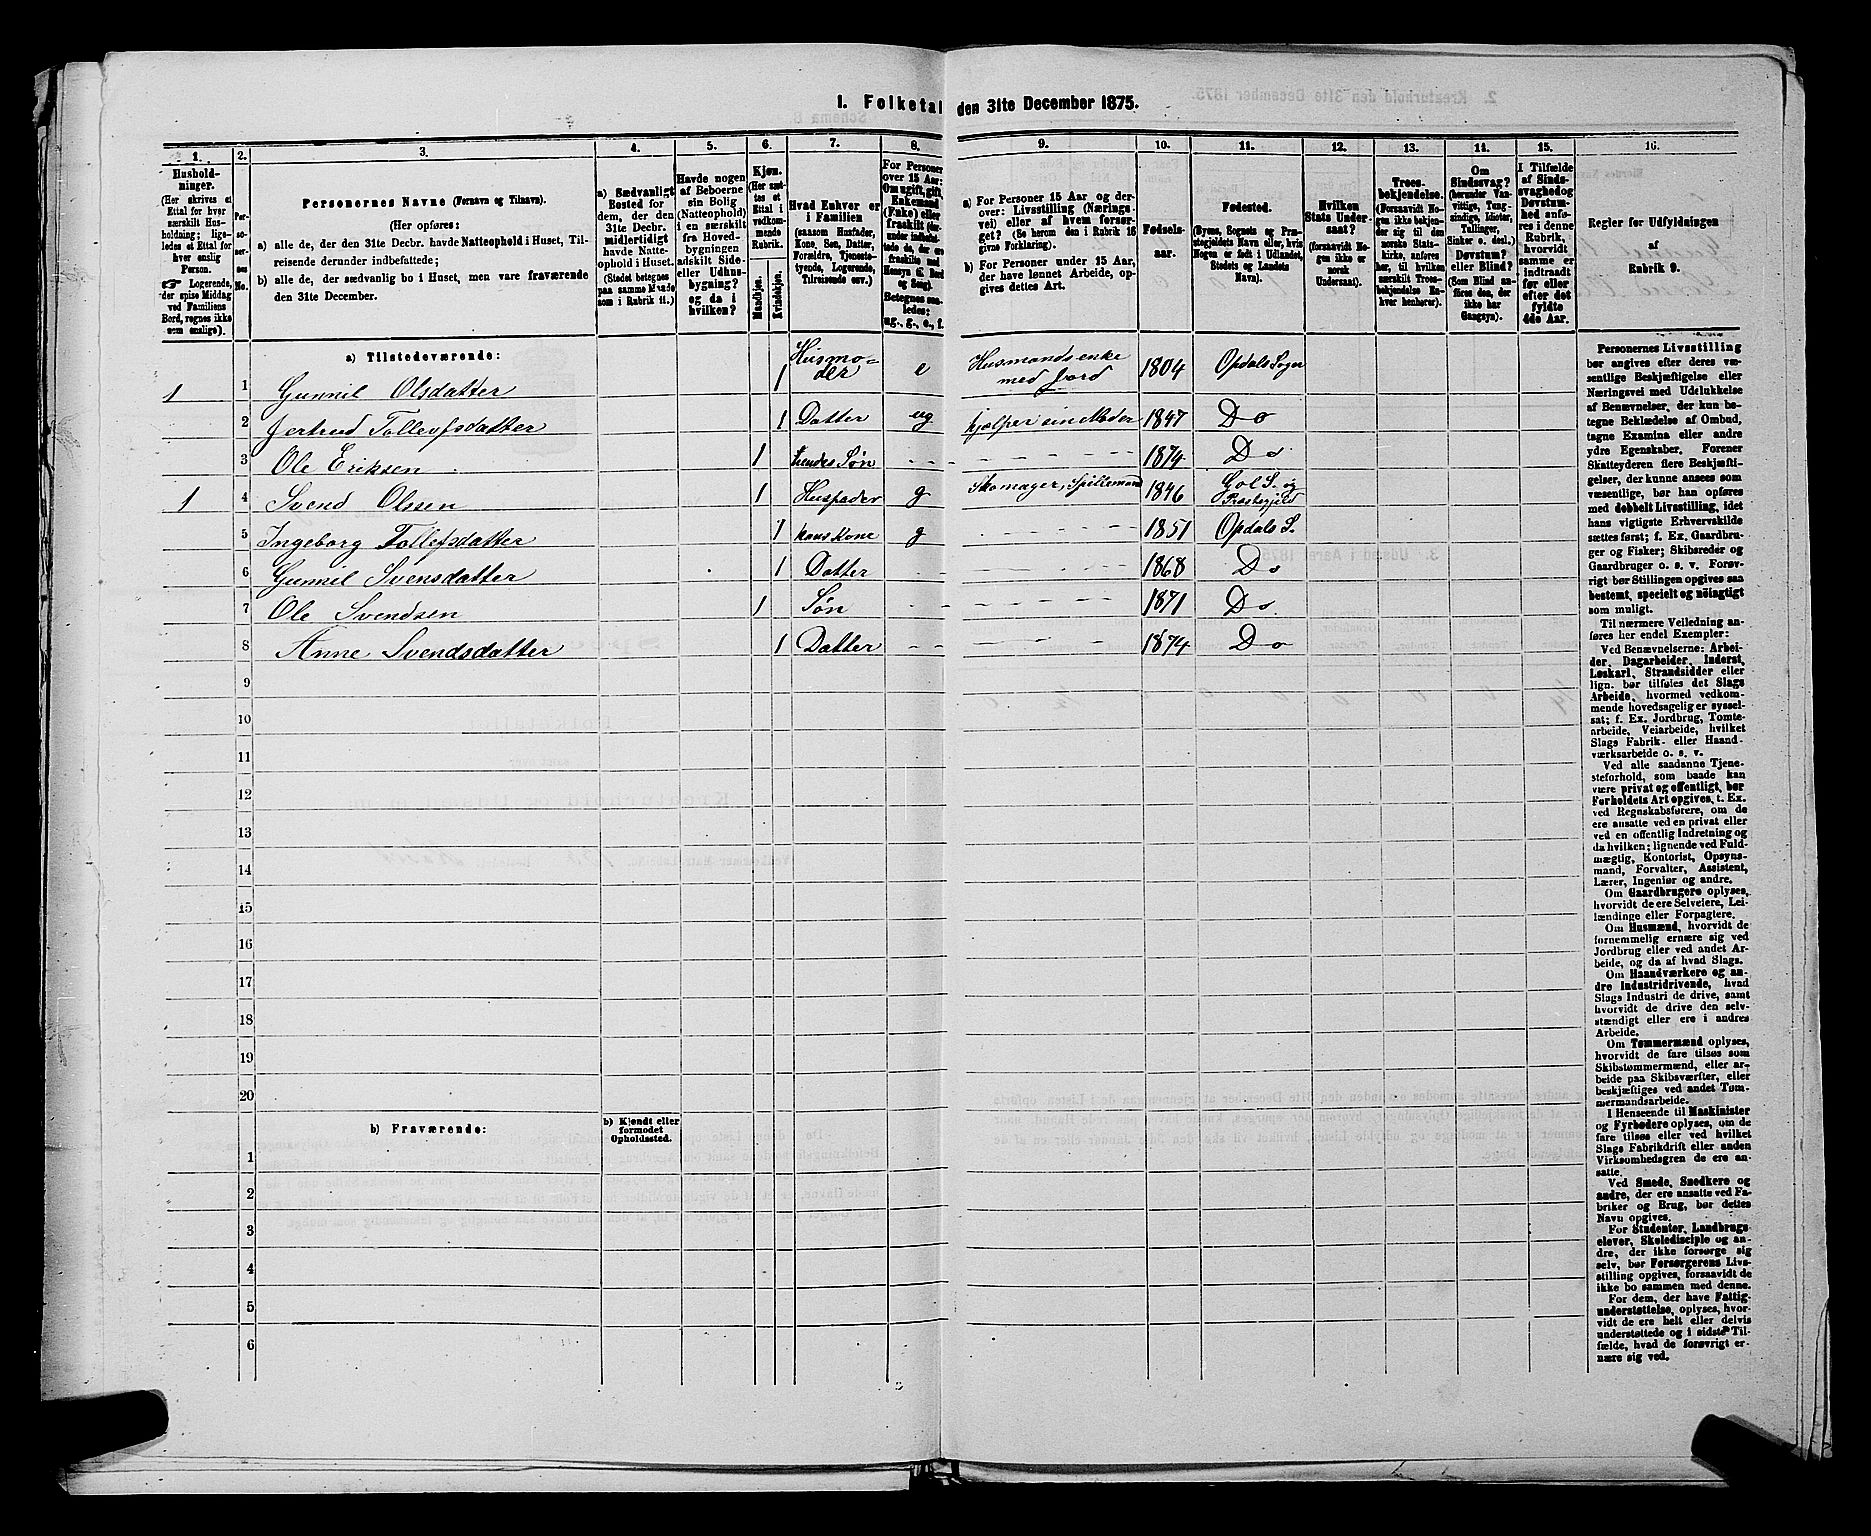 1. Folketal den 31te December 1875.
1.
2.
3.
4.
5.
6.
7.
8.
9.
10.
11.
12.
13.
14.
15.
16.
Hushold-
ninger.
(Her skrives et
Ettal for hver
særskilt Hus-
holdning; lige-
ledes et Ettal for
hver enslig
Person.
Logerende,
der spise Middag
ved Familiens
Bord, regnes ikke
som enslige).
Per-
so-
ner-
nes
No.
Personernes Navne (Fornavn og Tilnavn).
(Her opføres:
a) alle de, der den 31te Decbr. havde Natteophold i Huset, Til-
reisende derunder indbefattede;
b) alle de, der sædvanlig bo i Huset, men vare fraværende
den 31te December.
a) Sædvanligt
Bosted for
dem, der den
31te Decbr.
midlertidigt
havde Natte-
ophold i Huset.
(Stedet betegnes
paa samme Maade
som i Rubrik 11.)
Havde nogen
af Beboerne
sin Bolig
(Natteophold)
i en særskilt
fra Hoved-
bygningen
adskilt Side-
eller Udhus-
bygning?
og da i
hvilken?
Kjøn.
(Her sæt-
tes et
Ettal i
vedkom-
mende
Rubrik.
Mandkjøn.
Kvindekjøn.
Hvad Enhver er
i Familien
(saasom Husfader,
Kone, Søn, Datter,
Forældre, Tjeneste-
tyende, Logerende,
Tilreisende osv.)
For Personer
over 15 Aar:
Om ugift, gift,
Enkemand
(Enke) eller
fraskilt (der-
under indbefat-
tede de, der ere
fraskilte med
Hensyn til Bord
og Seng).
Betegnes saa-
ledes:
ug., g., e., f.
a) For Personer 15 Aar og der-
over: Livsstilling (Nærings-
vei) eller af hvem forsør-
get? (Se herom den i Rubrik 16
givne Forklaring).
b) For Personer under 15 Aar,
der have lønnet Arbeide, op-
gives dettes Art.
Fødsels-
aar.
Fødested.
(Byens, Sognets og Præ-
stegjeldets Navn eller, hvis
Nogen er født i Udlandet,
Stedets og Landets
Navn).
Hvilken
Stats Under-
saat?
(forsaavidt No-
gen ikke er
norsk
Undersaat).
Troes-
bekjendelse.
(Forsaavidt No-
gen ikke beken-
der sig til den
norske Stats-
kirke, anføres
her, til hvilken
særskilt Troes-
bekjendelse En-
hver henhører).
Om
Sindssvag?
(herunder Van-
vittige, Tung-
sindige, Idioter,
Tullinger,
Sinker o. desl.)
Døvstum?
eller Blind?
(Som Blind an-
føres den, der
ikke har
Gangsyn).
I Tilfælde
af Sinds-
svaghed og
Døvstum-
hed anfø-
res i denne
Rubrik,
hvorvidt
samme er
indtraadt
før eller
efter det
fyldte
4de Aar.
Regler for Udfyldningen
af
Rubrik 9.
a) Tilstedeværende:
1 1 Gunnil Olsdatter 1 Husmo-
der e Husmandsenke
med Jord 1804 Opdals Sogn
2 Jertrud Tollevfsdatter 1 Datter ug hjælper sin Moder 1847 Do
3 Ole Eriksen 1 hendes Søn - - - - - - - - - 1874 Do
1 4 Svend Olssen 1 Husfader g Skomager, Spillemand 1846 Gol S. og
Præstegjeld
5 Ingeborg Tollefsdatter 1 hans Kone g - - - - - 1851 Opdals S.
6 Gunnil Svensdatter 1 Datter - - - - - - - 1868 Do
7 Ole Svendsen 1 Søn - - - - - - - 1871 Do.
8 Anne Svendsdatter 1 Datter - - - - - - - 1874 Do
9
10
11
12
13
14
15
16
17
18
19
20
b) Fraværende:
b) Kjendt eller
formodet
Opholdssted.
1
2
3
4
5
6
Personernes Livsstilling
bør angives efter deres væ-
sentlige Beskjæftigelse eller
Næringsvei med Udelukkelse
af Benævnelser, der kun be-
tegne Beklædelse af Ombud,
tagne Examina eller andre
ydre Egenskaber. Forener
Skatteyderen flere Beskjæfti-
gelser, der kunne ansees som
væsentlige, bør han opføres
med dobbelt Livsstilling, idet
hans vigtigste Erhvervskilde
sættes først; f. Ex. Gaardbru-
ger og Fisker; Skibsreder og
Gaardbruger o. s. v. Forøv-
rigt bør Stillingen opgives saa
bestemt, specielt og nøiagtigt
som muligt.
Til nærmere Veiledning an-
føres her endel Exempler:
Ved Benævnelserne: Arbei-
der, Dagarbeider, Inderst,
Løskarl, Strandsidder eller
lign. bør tilføies det Slags
Arbeide, hvormed vedkom-
mende hovedsagelig er syssel-
sat; f. Ex. Jordbrug, Tomte-
arbeide, Veiarbeide, hvilket
Slags Fabrik- eller Haand-
værksarbeide o. s. v.
Ved alle saadanne Tjene-
steforhold, som baade kan
være privat og offentligt, bør
Forholdets Art opgives, t. Ex.
ved Regnskabsførere, om de
ere ansatte ved en privat eller
ved en offentlig Indretning og
da hvilken; lignende ved Fuld-
mægtig, Kontorist, Opsyns-
mand, Forvalter, Assistent,
Lærer, Ingeniør og andre.
Om Gaardbrugere oplyses,
hvorvidt de ere Selveiere, Lei-
lændinge eller Forpagtere.
Om Husmænd, hvorvidt de
fornemmelig ernære sig ved
Jordbrug eller ved andet Ar-
beide, og da af hvad Slags.
Om Haandværkere og an-
dre Industridrivende, hvad
Slags Industri de drive, samt
hvorvidt de drive den selv-
stændigt eller ere i andres
Arbeide.
Om Tømmermænd oplyses,
hvorvidt de fare tilsøs som
Skibstømmermænd, eller ar-
beide paa Skibsværfter, eller
beskjæftiges ved andet Tøm-
mermandsarbeide.
I Henseende til Maskinister
og Fyrbødere oplyses, om de
fare tilsøs eller ved hvilket
Slags Fabrikdrift eller anden
Virksomhedsgren de ere an-
satte.
Ved Smede, Snedkere og
andre, der ere ansatte ved Fa-
briker og Brug, bør dettes
Navn opgives.
For Studenter, Landbrugs-
elever, Skoledisciple og an-
dre, der ikke forsørge sig
selv, bør Forsørgerens Livs-
stilling opgives, forsaavidt de
ikke bo sammen med denne.
For dem, der have Fattig-
understøttelse, oplyses, hvor-
vidt de ere helt eller delvis
understøttede og i sidste Til-
fælde, hvad de forøvrigt er-
nære sig ved.